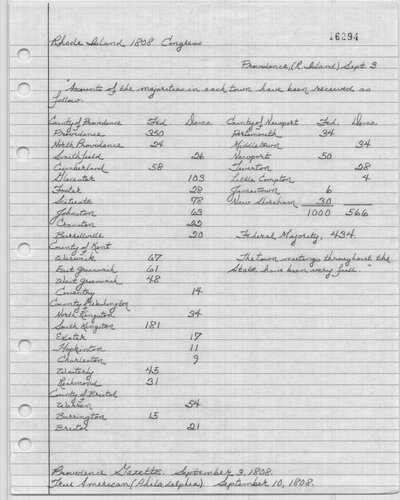 Rhode Island 1808 Congress
16294
Providence, (R. Island) Sept. 3
"Amounts of the majorities in each town have been received as
follow:
County of Providence Fed. Demo. County of Newport Fed. Demo.
Providence 350 Portsmouth 34
North Providence 24 Middletown 34
Smithfield 26 Newport 50
Cumberland 58 Tiverton 28
Glocester 103 Little Compton 4
Foster 28 Jamestown 6
Scituate 78 New Shoreham 30
Johnston 63 1000 566
Cranston 22
Burrillville 20 Federal Majority, 434.
County of Kent
Warwick 67 The town meetings throughout the
East Greenwich 61 State have been very full."
West Greenwich 48
Coventry 14
County of Washington
North Kingston 34
South Kingston 181
Exeter 17
Hopkinton 11
Charleston 9
Westerly 45
Richmond 31
County of Bristol
Warren 54
Barrington 15
Bristol 21
Providence Gazette. September 3, 1808.
True American (Philadelphia). September 10, 1808.